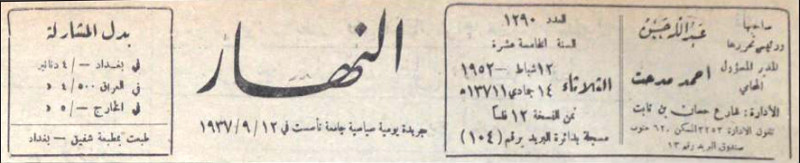 صاحبها
ورئيس تحريرها
عبد الله حسين
المدير المسؤول
المحامي
احمد مدحت
الادارة: شارع حسان بن ثابت
تلفون الادارة ٣٢٥٣ السكن ٦٢٠ جنوب
صندوق البريد رقم ١٣
العدد ١٢٩٠
السنة الخامسة عشرة
الثلاثاء
١٢ شباط – ١٩٥٢
١٤ جمادي ١١–١٣٧١ﻫ
ثمن النسخة ١٢ فلسا
مسجلة بدائرة البريد برقم (١٠٤)
النهار
جريدة يومية سياسية جامعة تأسست في ١٢/٩/١٩٣٧
بدل المشاركة
في بغداد –/٤ دنانير
في العراق ٥٠٠/٤ د
في الخارج –/٥ د
طبعت بمطبعة شفيق – بغداد